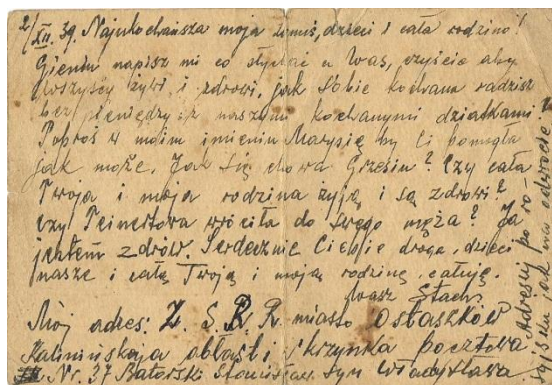 2/XII. 39. Najukochańsza moja żoniś, dzieci i cała rodzino!
Gieniu napisz mi co słychać u Was, czyście aby
wszyscy żywi i zdrowi, jak sobie kochana radzisz
bez pieniędzy z naszymi kochanymi dziatkami.
Poproś w moim imieniu Marysię by Ci pomogła
jak może. Jak się chowa Grzesiu? Czy cała
Twoja i moja rodzina żyją i są zdrowi?
Czy Peinertowa wróciła do swego męża? Ja
jestem zdrów. Serdecznie Ciebie droga, dzieci
nasze i całą Twoją i moją rodzinę, całuję.
Wasz Stach.
Mój adres: Z. S. R. R. miasto Ostaszków
Kalininskaja obłast skrzynka pocztowa
Nr. 37 Batorski Stanisław syn Władysława.
Adresuj po rosyjsku jak na odwrocie